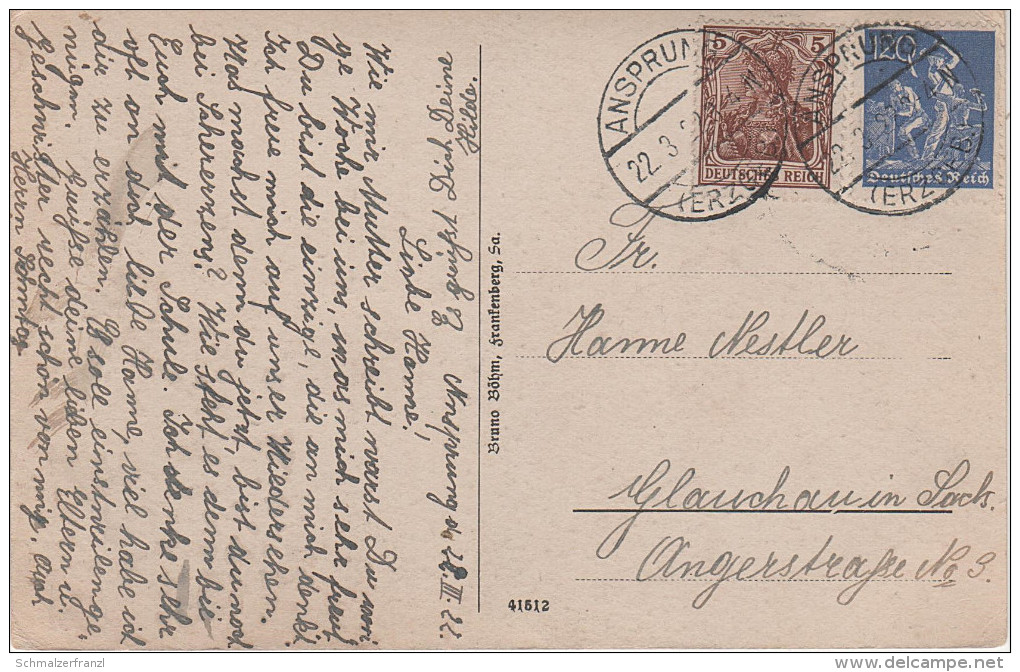 Ansprung d. 22. III. 22.
Liebe Hanne!
Wie mir Mutter schreibt warst Du vori-
ge Woche bei uns, was mich sehr freut
Du bist die einzige, die an mich denkt
Ich freue mich auf unser Wiedersehen.
Was machst denn du jetzt, bist du noch
bei Schererzens? Wie steht es denn bei
Euch mit der Schule. Ich denke sehr
oft an dich, liebe Hanne, viel habe ich
dir zu erzählen. Es soll einstweilen ge-
nügen. Grüße deine lieben Eltern u.
Geschwister recht schön von mir, auch
Herrn
Es grüßt Dich Deine
Hilde.
Bruno Böhm, Frankenberg, Sa.
41512
ANSPRUNG
22.3.22
(ERZGEB.)
5 5
DEUTSCHES REICH
ANSPRUNG
22.3.22
(ERZGEB.)
120
Deutsches Reich
Fr.
Hanne Nestler
Glauchau in Sachs.
Angerstraße No 3.
© Schmalzerfranzl
delcampe.net